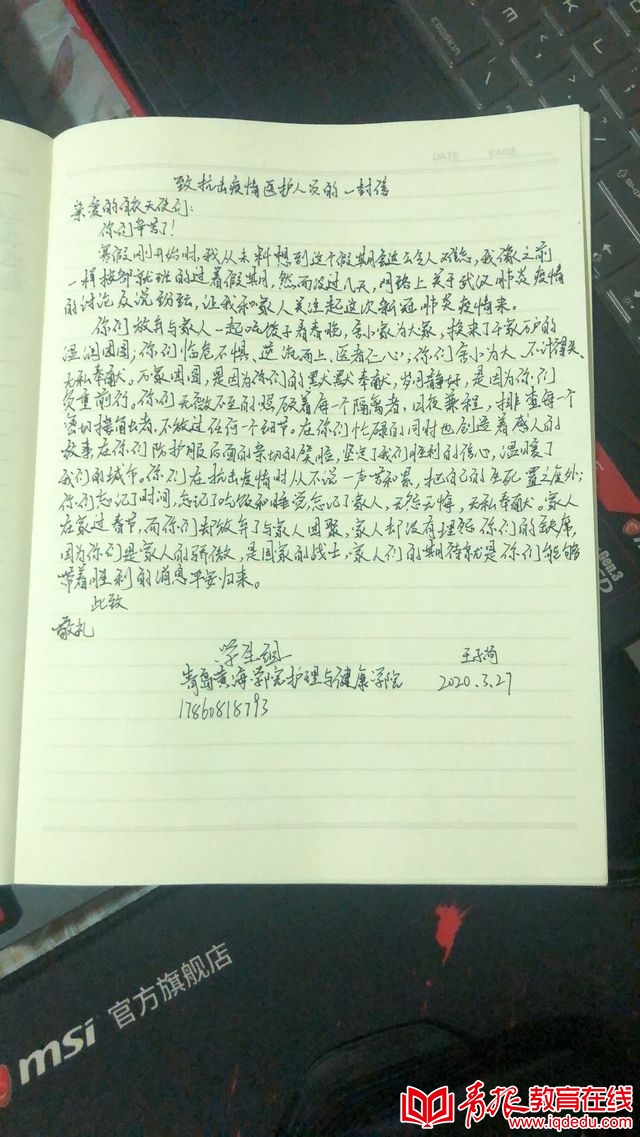 COOSKIN
DATE PAGE
致抗击疫情医护人员的一封信
亲爱的白衣天使们:
你们辛苦了!
寒假刚开始时,我从未料想到这个假期会这么令人不能忘,我像之前
一样按部就班的过着假期,然而没过几天,网络上关于武汉肺炎疫情
的讨论众说纷纭,让我和家人关注起这次新冠肺炎疫情来。
你们放弃与家人一起吃饺子看春晚,舍小家为大家,换来了千家万户的
温润团圆;你们临危不惧、逆流而上、医者仁心;你们舍小为大、不计得失、
无私奉献。万家团圆,是因为你们的默默奉献,岁月静好,是因为你们
负重前行。你们无微不至的照顾着每一个隔离者,日夜兼程,排查每一个
密切接触者,不放过任何一个细节。在你们忙碌的同时也创造着感人的
故事,在你们防护服后面的亲切的笑脸,坚定了我们胜利的信心,温暖了
我们的城市。你们在抗击疫情时从不说一声苦和累,把自己的生死置之度外;
你们忘记了时间,忘记了吃饭和睡觉,忘记了家人,无怨无悔,无私奉献。家人
在家过春节,而你们却放弃了与家人团聚,家人却没有埋怨你们的缺席,
因为你们是家人的骄傲,是国家的战士,家人们的期待就是你们能够
带着胜利的消息平安归来。
此致
敬礼
学生组
青岛黄海学院护理与健康学院 2020.3.27
17860818793
msi 官方旗舰店
青报教育在线
www.iqdedu.com